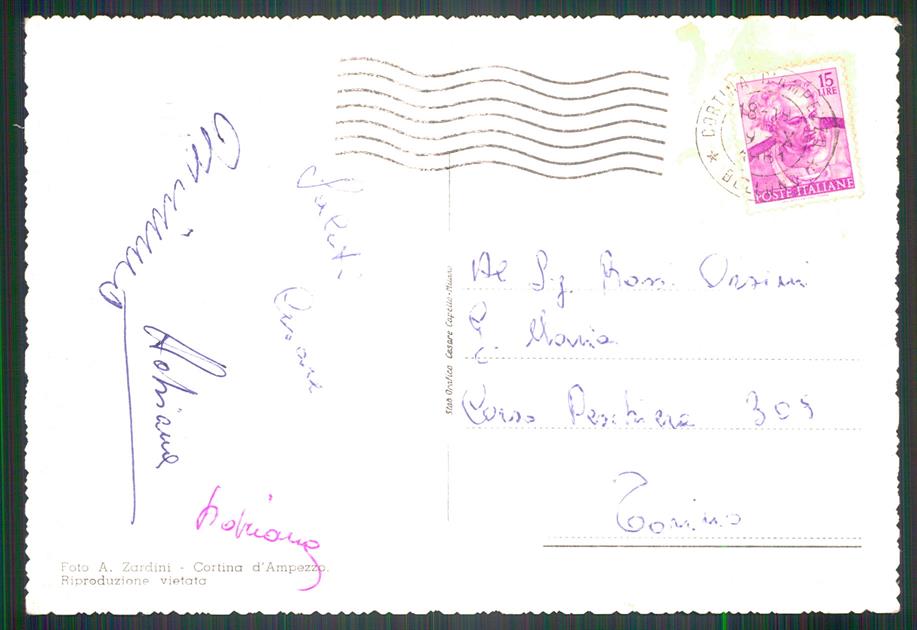 Saluti
Adriana
Adriano
Al Sig. Rossi
Maria
Corso Peschiera 309
Torino
15
LIRE
POSTE ITALIANE
CORTINA D'AMPEZZO
Stab. Grafico Cesare Capello-Milano
Foto A. Zardini - Cortina d'Ampezzo.
Riproduzione vietata